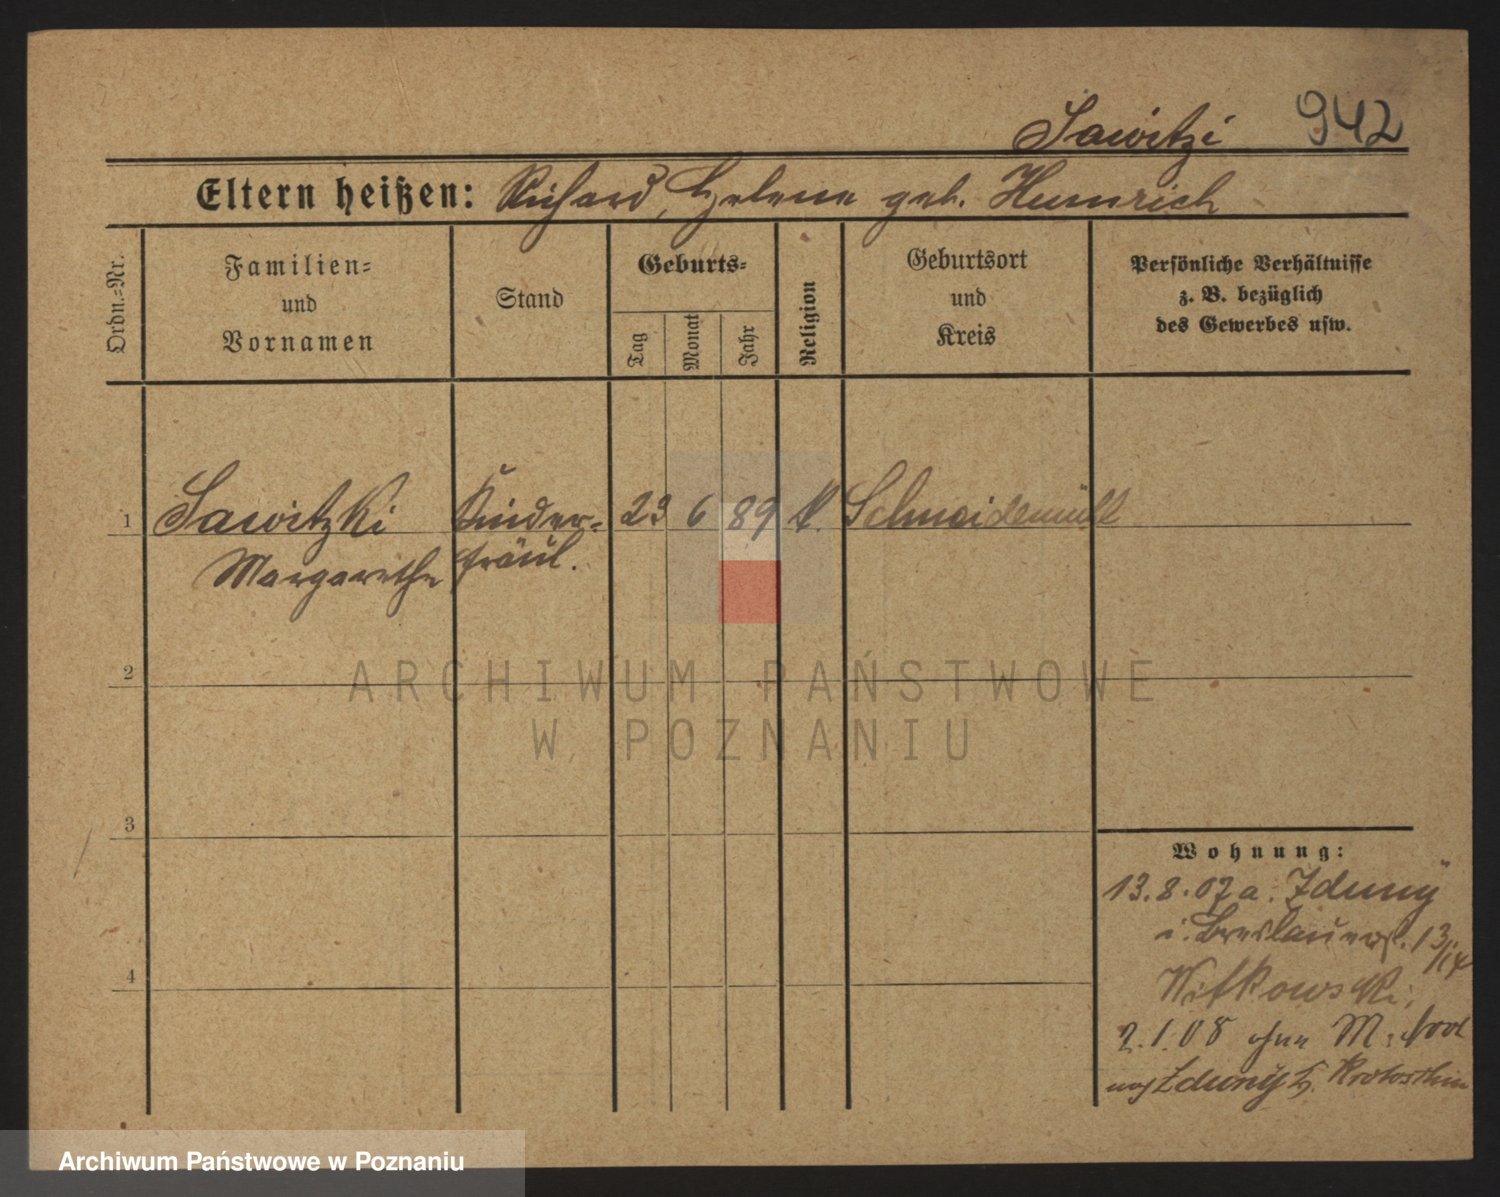 Sawitzi 942
Eltern heißen: Richard, Helene geb. Heinrich
Ordn.=Nr.
Familien=
und
Vornamen
Stand
Geburts=
Tag
Monat
Jahr
Religion
Geburtsort
und
Kreis
Persönliche Verhältnisse
z. B. bezüglich
des Gewerbes usw.
1 Sawitzki Kinder= 23 6 89 k. Schneidemühl
Margarethe fräul.
2
3
4
Wohnung:
13.8.07 a. Zduny
i. Breslauerst. 13/14
Witkowski,
2.1.08 ohne
nach Zduny K. Krotoschin
ARCHIWUM PAŃSTWOWE
W POZNANIU
Archiwum Państwowe w Poznaniu